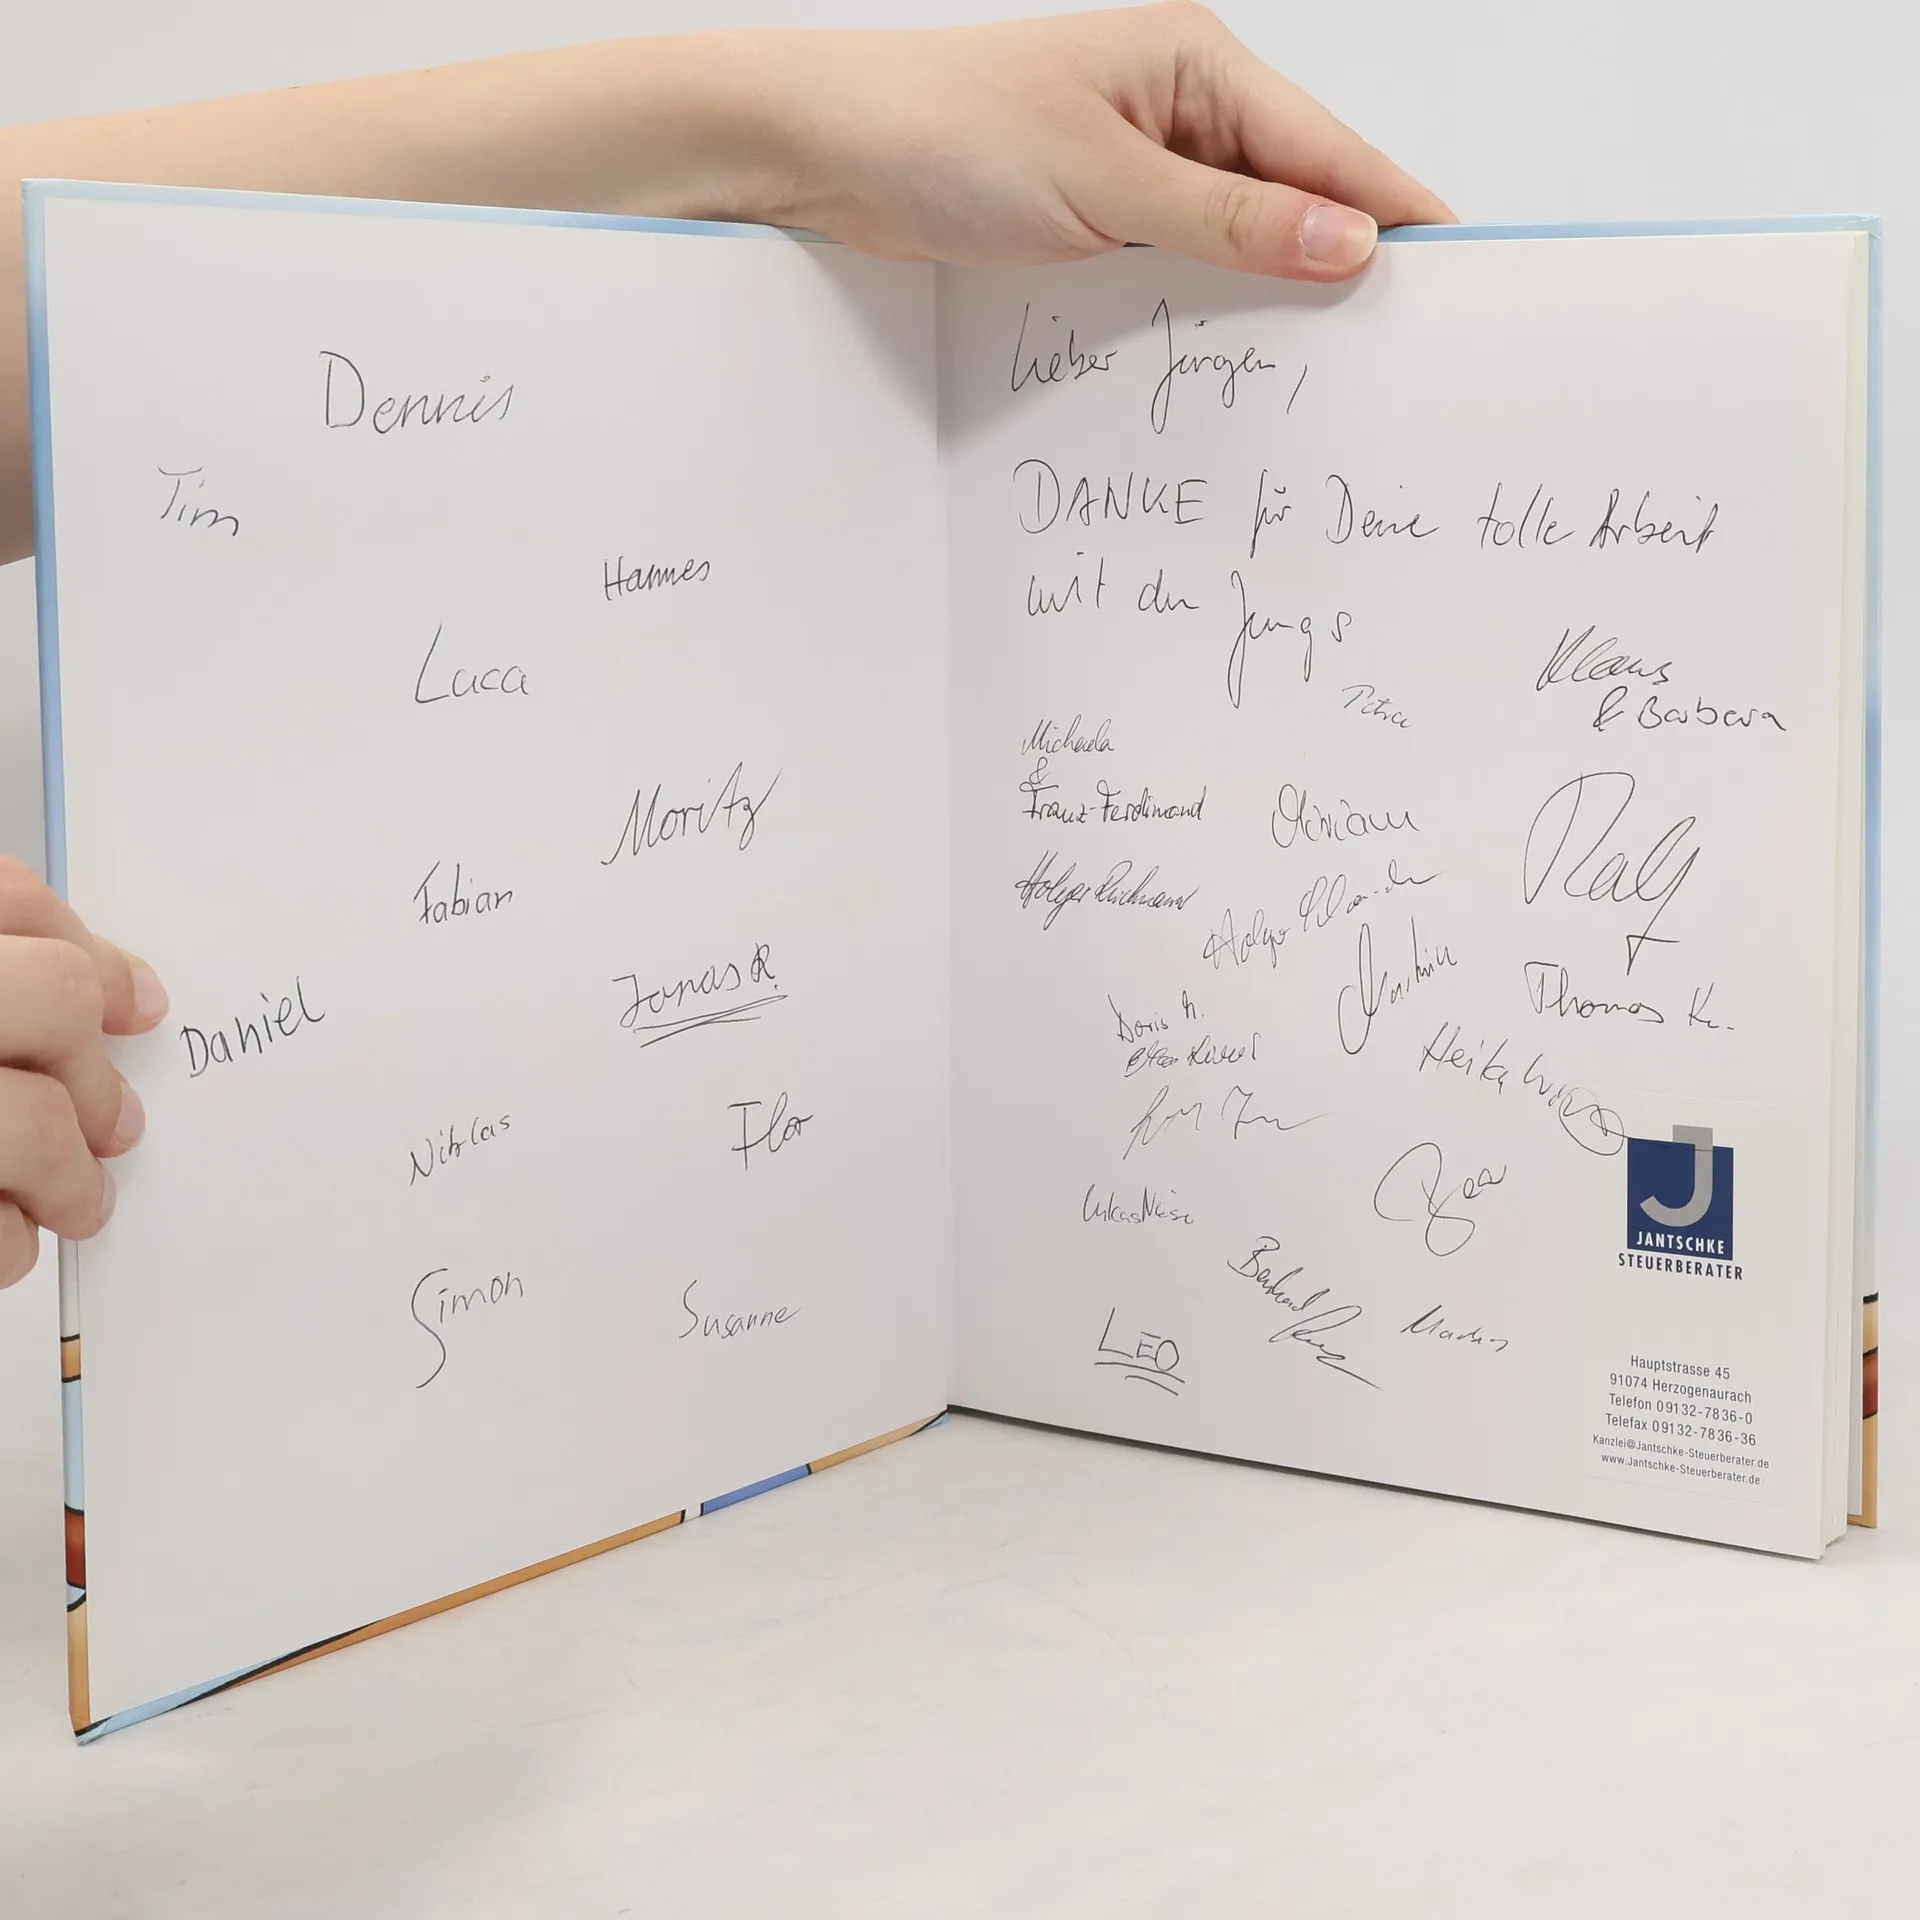 Dennis
Tim
Hannes
Luca
Moritz
Fabian
Jonas R.
Daniel
Niklas
Flor
Simon
Susanne
Lieber Jürgen,
DANKE für Deine tolle Arbeit
mit den Jungs
Petra
Klaus
& Barbara
Michaela
&
Franz-Ferdinand
Ralf
Holger
Holger
Martin
Thomas K.
Doris
Heike
Lukas
Bernhard
LEO
Markus
J
JANTSCHKE
STEUERBERATER
Hauptstrasse 45
91074 Herzogenaurach
Telefon 09132-7836-0
Telefax 09132-7836-36
Kanzlei@Jantschke-Steuerberater.de
www.Jantschke-Steuerberater.de